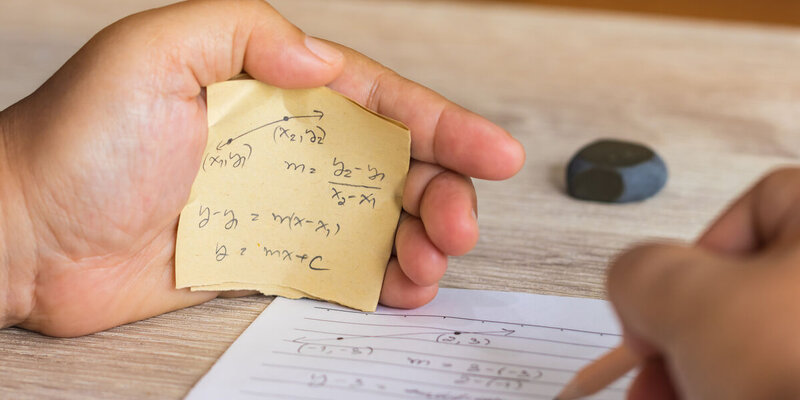 (x₂, y₂)
(x₁, y₁)
m = (y₂ - y₁)/(x₂ - x₁)
y - y₁ = m(x - x₁)
y = mx + c
(2, 3)
(-1, -3)
m = (3 - (-3))/(2 - (-1))
y - 3 =